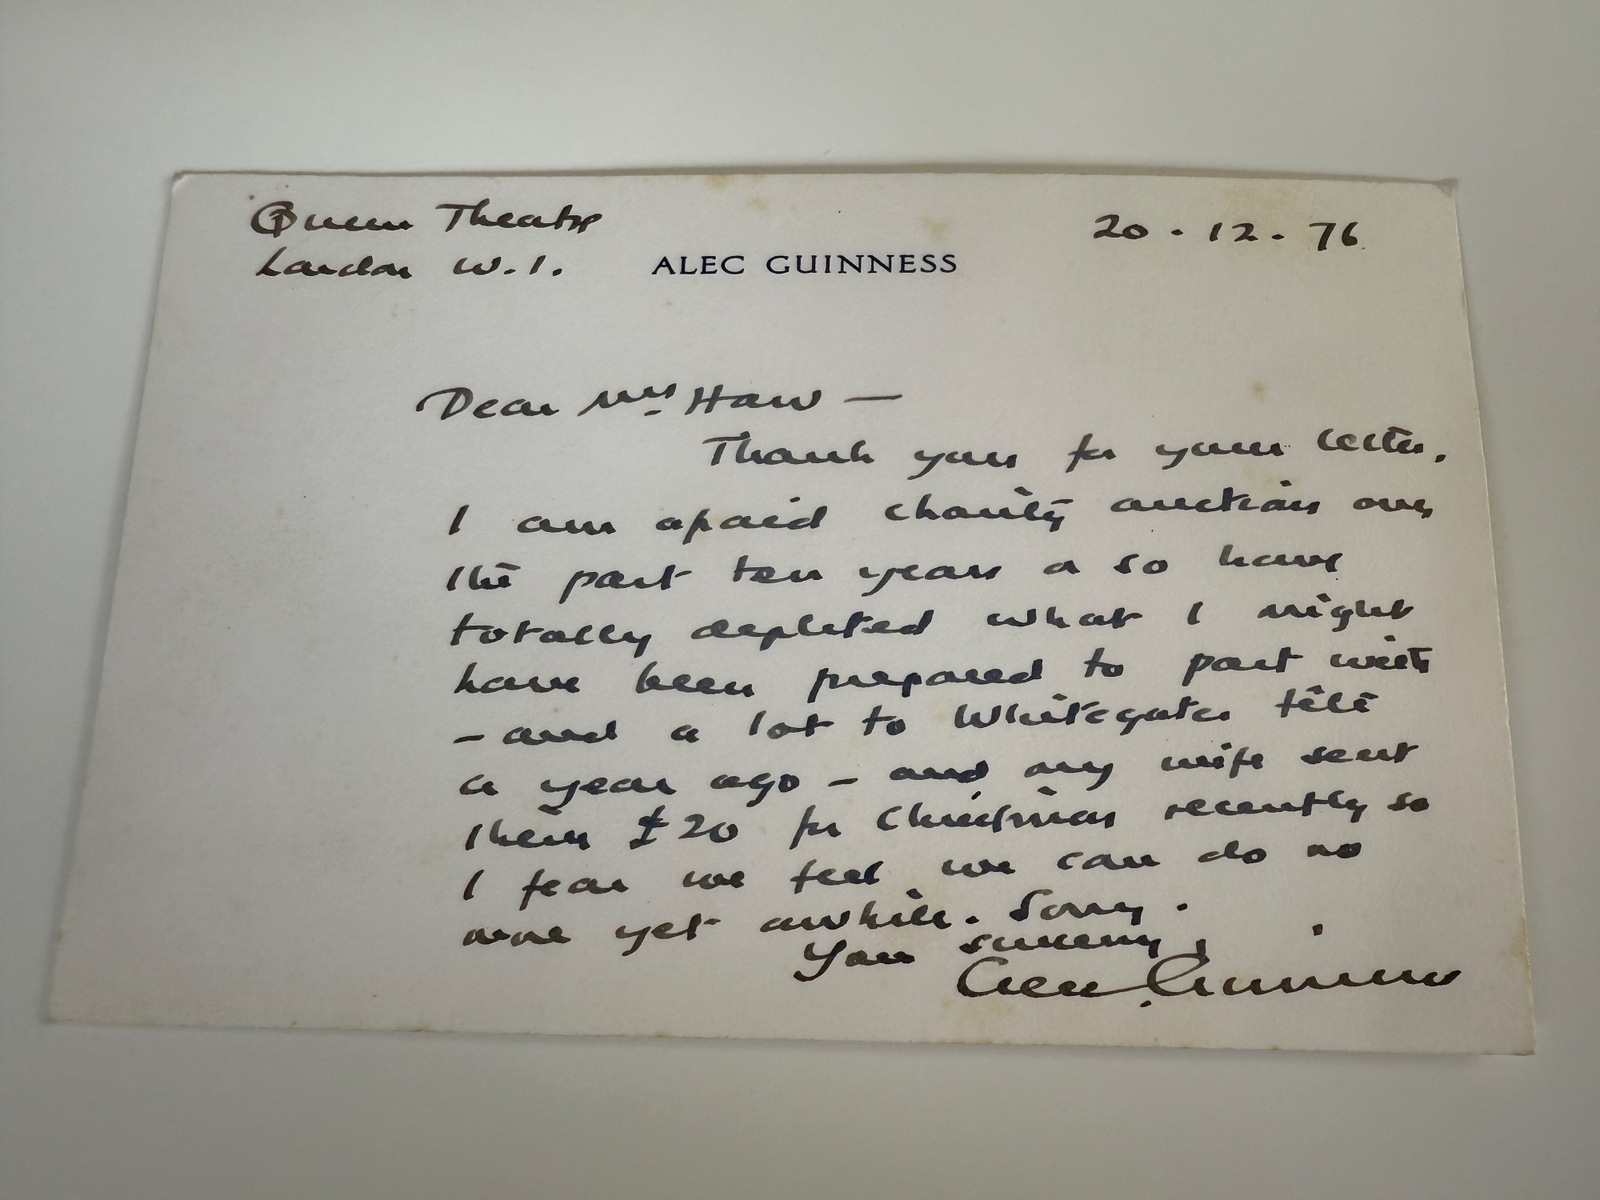 Queens Theatre
London W.1.
ALEC GUINNESS
20 . 12 . 76
Dear Mrs Haw —
Thank you for your letter.
I am afraid charity auctions over
the past ten years or so have
totally depleted what I might
have been prepared to part with
– and a lot to Whitegates
a year ago – and my wife sent
them £20 for Christmas recently so
I fear we feel we can do no
more yet awhile. Sorry.
Yours sincerely,
Alec Guinness